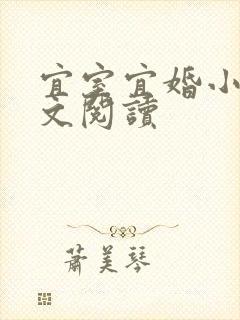 宜室宜婚小
文閱讀
蕭美琴